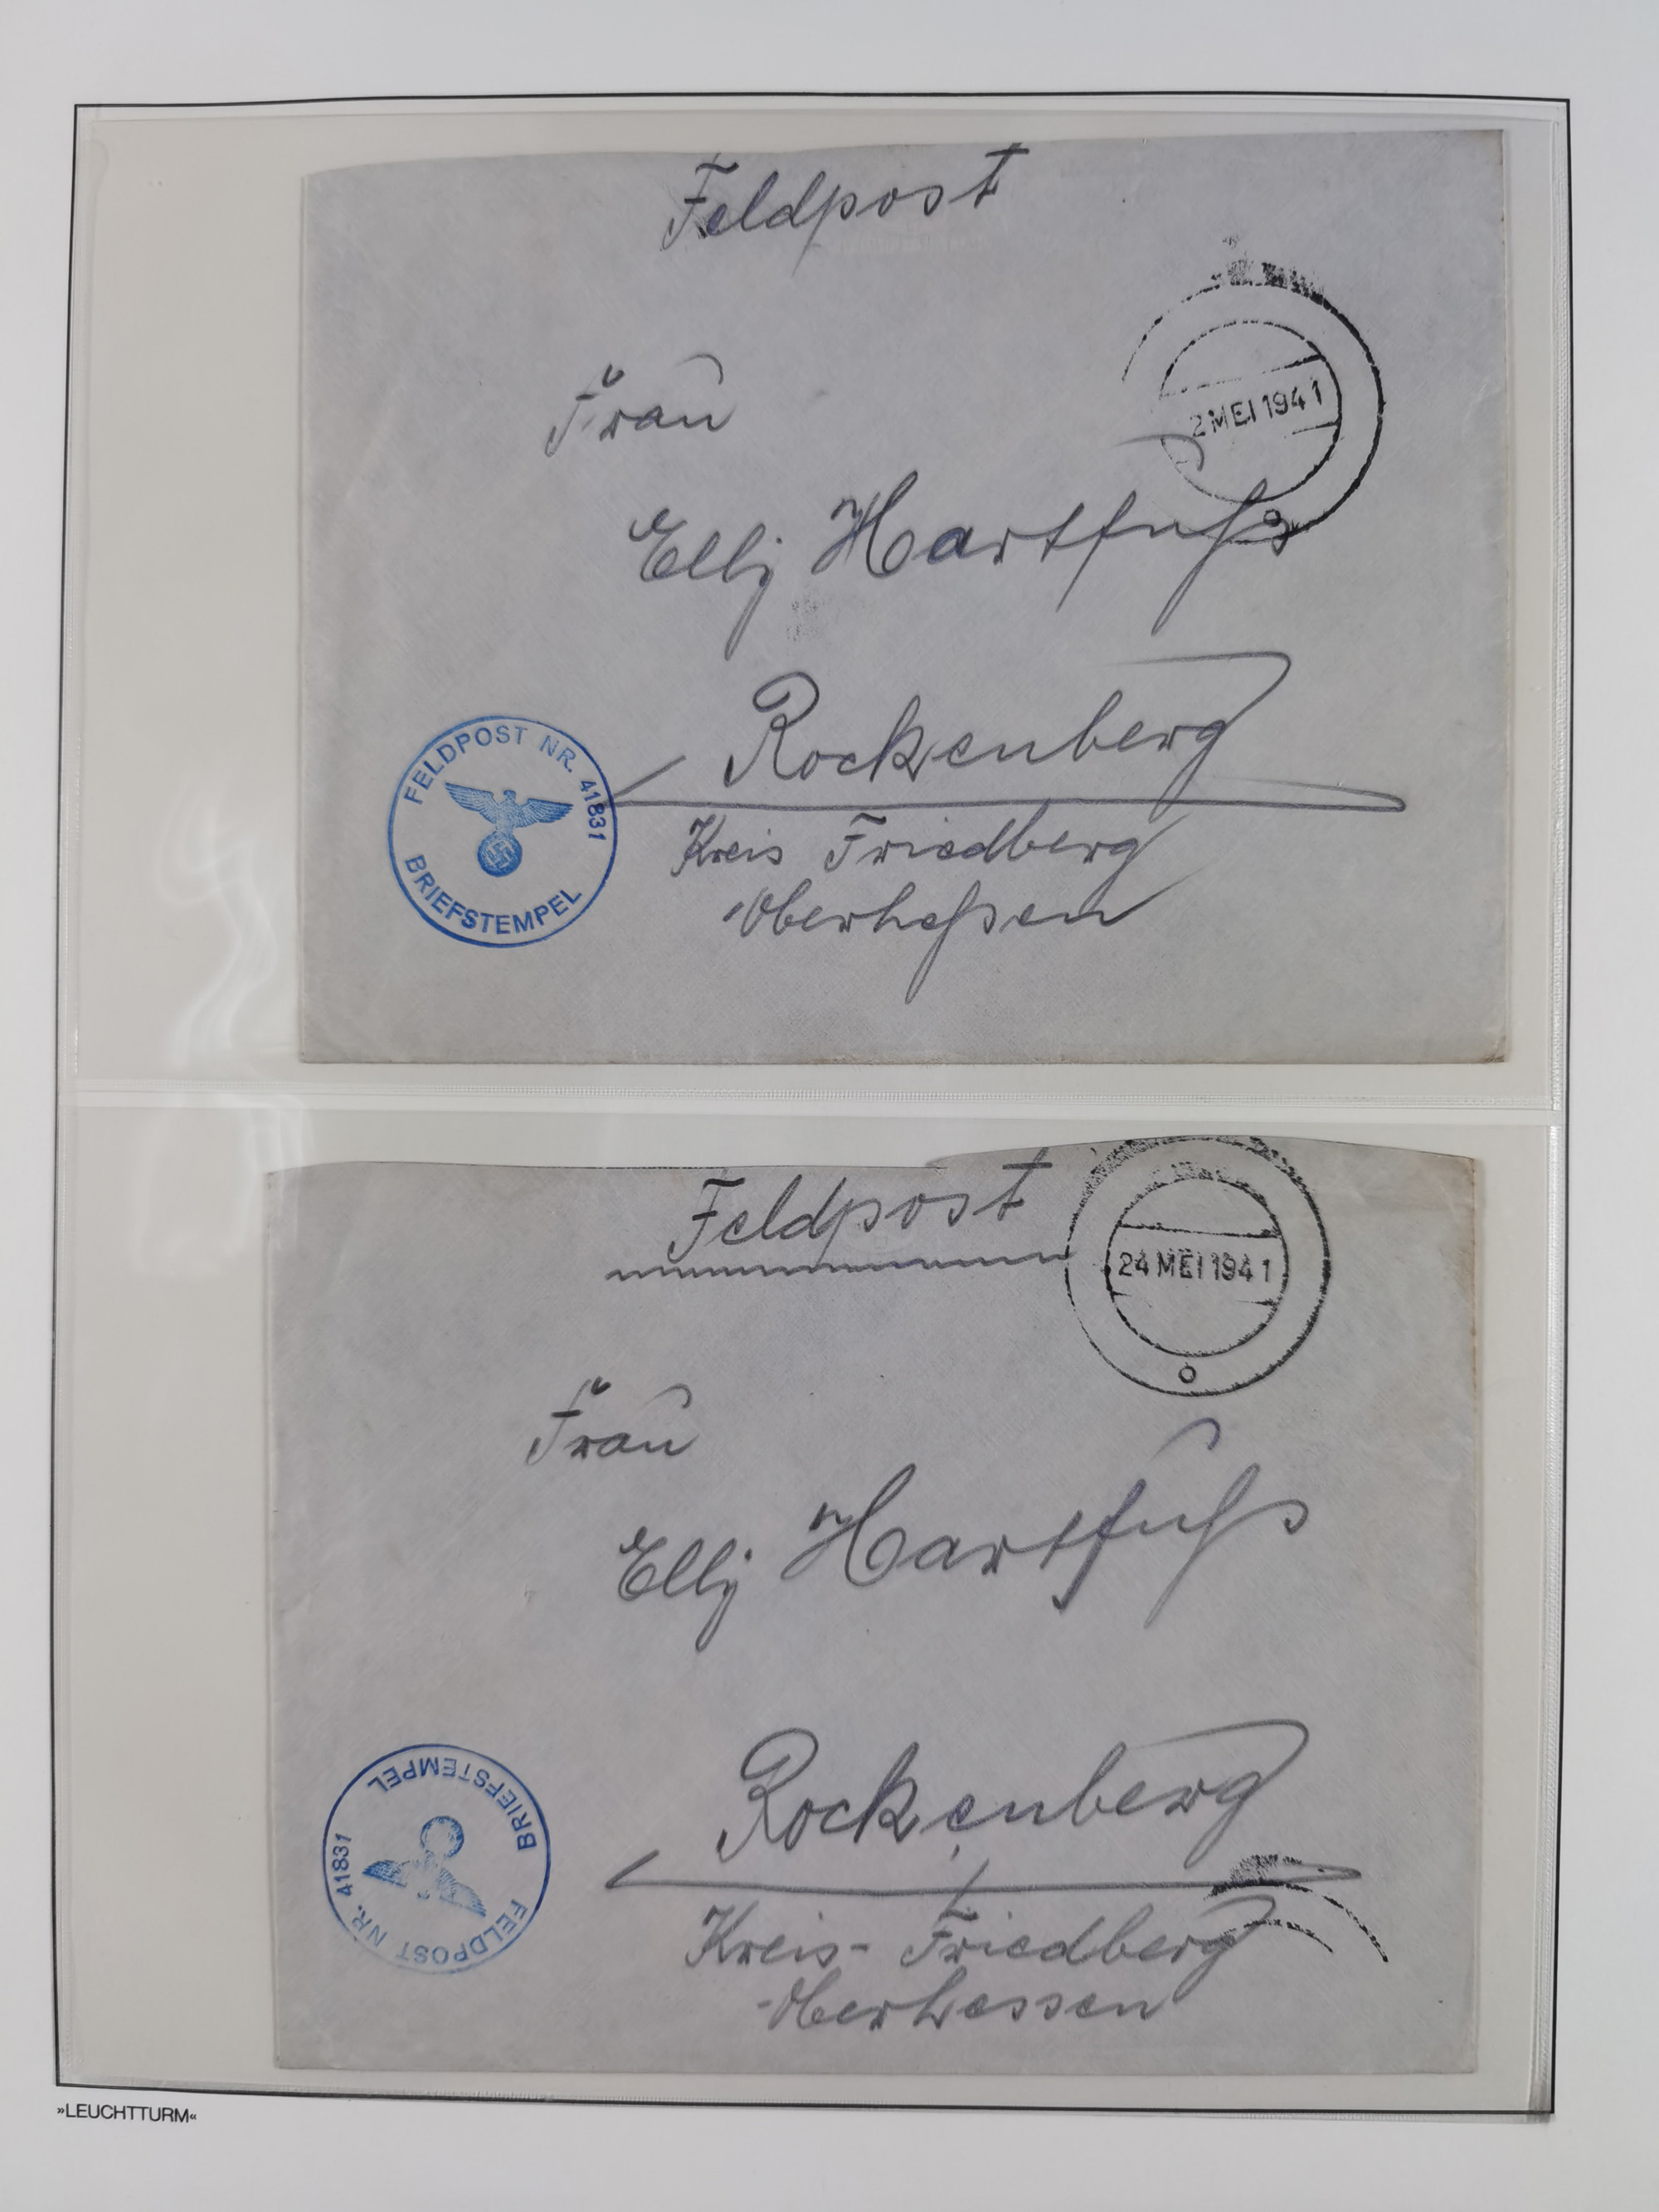 Feldpost
2 MEI 1941
Frau
Elly Hartfuß
Rockenberg
FELDPOST NR. 41831
BRIEFSTEMPEL
Kreis Friedberg
Oberheßen
Feldpost
24 MEI 1941
Frau
Elly Hartfuß
Rockenberg
FELDPOST NR. 41831
BRIEFSTEMPEL
Kreis- Friedberg
Oberhessen
»LEUCHTTURM«